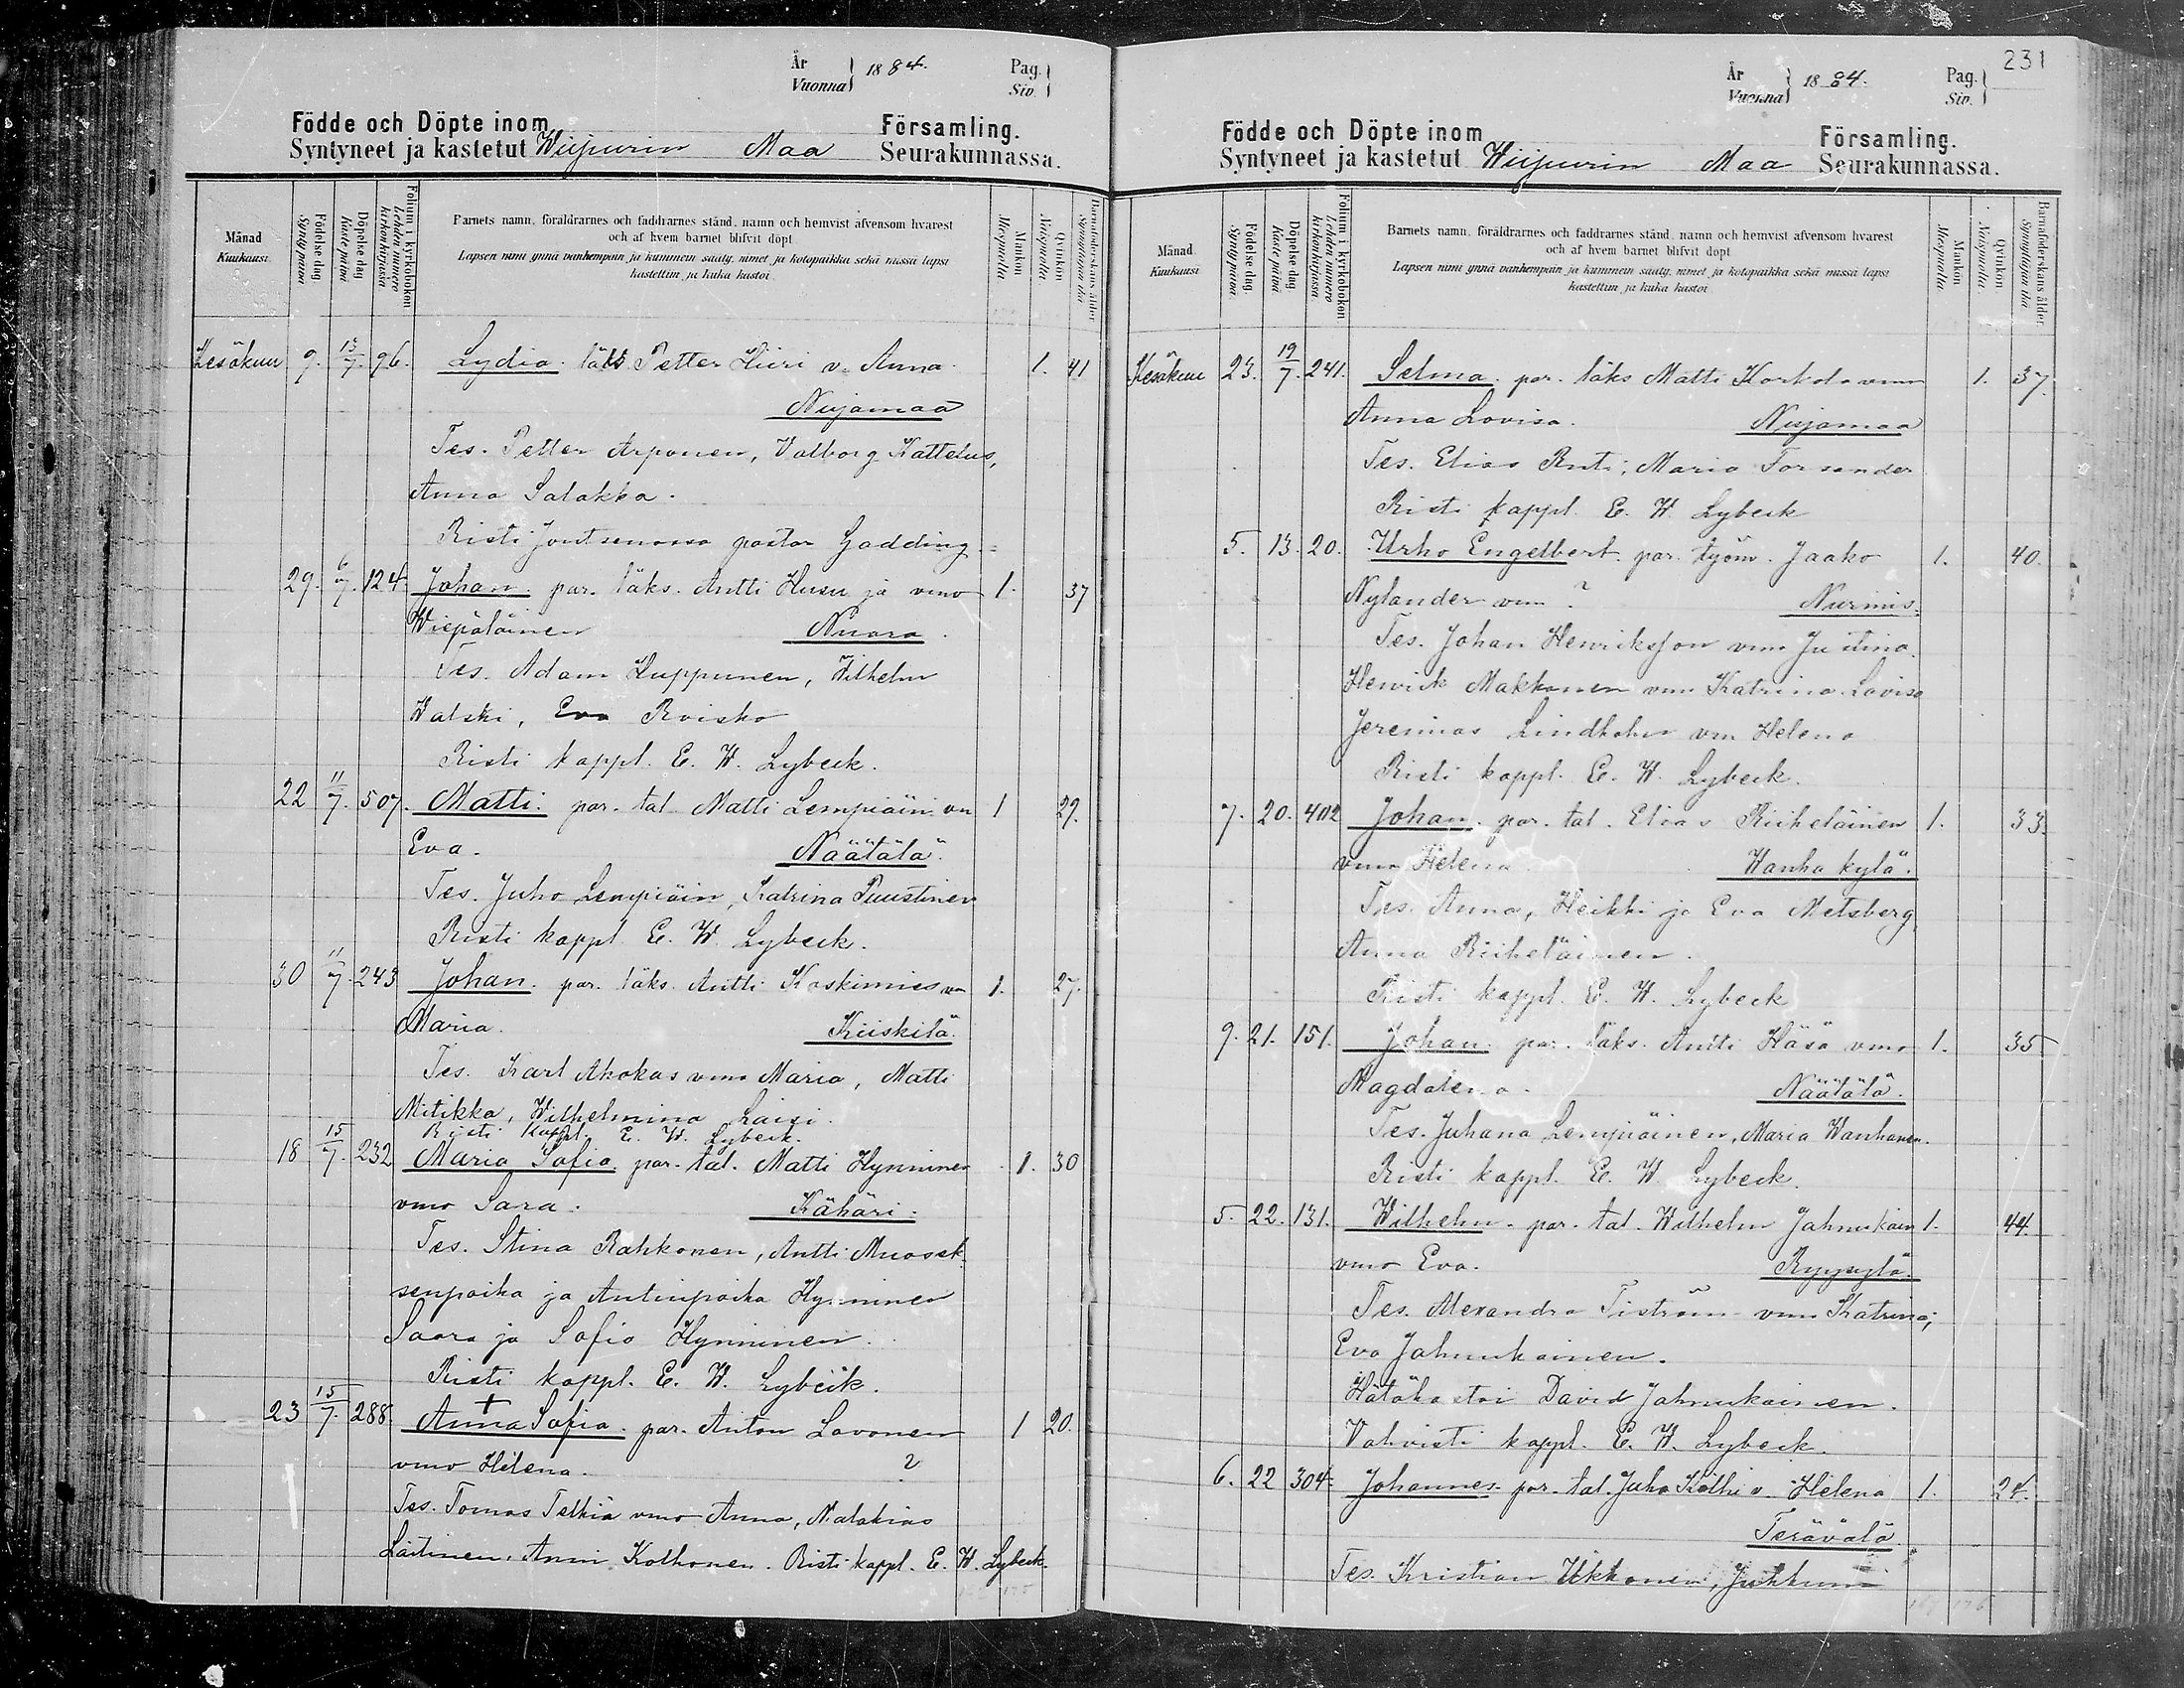 År
Vuonna } 1884.
Pag.
Siv.
Födde och Döpte inom Församling.
Syntyneet ja kastetut Wiipurin Maa Seurakunnassa.
Månad
Kuukausi
Födelse dag
Synty päivä
Döpelse dag
Kaste päivä
Folium i kyrkoboken
Lehden numero kirkonkirjassa
Barnets namn, föräldrarnes och faddrarnes stånd, namn och hemvist äfvensom hvarest
och af hvem barnet blifvit döpt
Lapsen nimi ynnä vanhempain ja kummein sääty, nimet ja kotopaikka sekä missä lapsi
kastettiin ja kuka kastoi
Mankön
Miespuolia
Qvinkön
Naispuolia
Barnaföderskans ålder
Synnyttäjän ikä
Kesäkuu 9. 13/7. 96. Lydia. läks Petter Hiiri v. Anna. 1. 41
Nuijamaa
Tes. Petter Arponen, Valborg Kattelus,
Anna Salakka.
Risti Joutsenossa pastor Gadding
29. 6/7. 124. Johan par. läks. Antti Husu ja vmo 1. 37
Wiepäläinen Nuora.
Tes. Adam Huppunen, Wilhelm
Walski, Eva Roisko
Risti kappl. E. W. Lybeck.
22 11/7. 507. Matti. par. tal. Matti Lempiäin. vm 1 29.
Eva. Näätälä.
Tes. Juho Lempiäin, Katrina Puustinen
Risti kappl E. W. Lybeck.
30 11/7. 243 Johan. par. läks. Antti Koskimies vm 1. 27.
Maria. Kiiskilä.
Tes. Karl Ahokas vmo Maria, Matti
Mitikka, Wilhelmina Laisi.
Risti Kappl. E. W. Lybeck.
18 15/7. 232 Maria Sofia. par. tal. Matti Hynninen 1. 30
vmo Sara. Kähäri.
Tes. Stina Rahkonen, Antti
senpoika ja Antinpoika Hynninen
Saara ja Sofia Hynninen.
Risti kappl. E. W. Lybeck.
23 15/7. 288 + Anna Sofia. par. Anton Lavonen 1 20.
vmo Helena. ?
Tes. Tomas Telkiä vmo Anna, Malakias
Laitinen, Anni Kolhonen. Risti kappl. E. W. Lybeck.
231
År
Vuonna } 1884.
Pag.
Siv.
Födde och Döpte inom Församling.
Syntyneet ja kastetut Wiipurin Maa Seurakunnassa.
Månad
Kuukausi
Födelse dag.
Synty päivä
Döpelse dag.
Kaste päivä
Folium i kyrkoboken
Lehden numero kirkonkirjassa
Barnets namn, föräldrarnes och faddrarnes stånd, namn och hemvist äfvensom hvarest
och af hvem barnet blifvit döpt
Lapsen nimi ynnä vanhempain ja kummein sääty, nimet ja kotopaikka sekä missä lapsi
kastettiin ja kuka kastoi
Mankön
Miespuolia
Qvinkön
Naispuolia
Barnaföderskans ålder
Synnyttäjän ikä
Kesäkuu 23. 19/7. 241. Selma. par. läks Matti Korkola vmo 1. 37.
Anna Lovisa. Nuijamaa
Tes. Elias Ruti, Maria Forsander
Risti kappl. E. W. Lybeck
5. 13. 20. Urho Engelbert. par. työm. Jaako 1. 40.
Nylander vm ? Nurmis.
Tes. Johan Henriksson vmo Justina.
Henrik Makkonen vmo Katrina Lovisa
Jeremias Lindholm vm Helena
Risti kappl. E. W. Lybeck.
7. 20. 402 Johan. par. tal. Elias Riiheläinen 1. 33.
vmo Helena. Wanha kylä.
Tes. Anna, Heikki ja Eva Metsberg
Anna Riiheläinen.
Risti kappl. E. W. Lybeck
9. 21. 151. Johan par. läks. Antti Häsä vmo 1. 35
Magdalena. Näätälä.
Tes. Juhana Lempiäinen, Maria Wanhanen.
Risti kappl. E. W. Lybeck.
5. 22. 131. Wilhelm. par. tal. Wilhelm Jahnukain 1. 44.
vmo Eva. Ryysylä.
Tes. Alexandra Tiström vmo Katrina,
Eva Jahnukainen.
Hätäkastoi David Jahnukainen.
Vahvisti kappl. E. W. Lybeck.
6. 22 304. Johannes. par. tal. Juho Kälhi v. Helena 1. 24.
Terävälä.
Tes. Kristian Ukkonen,